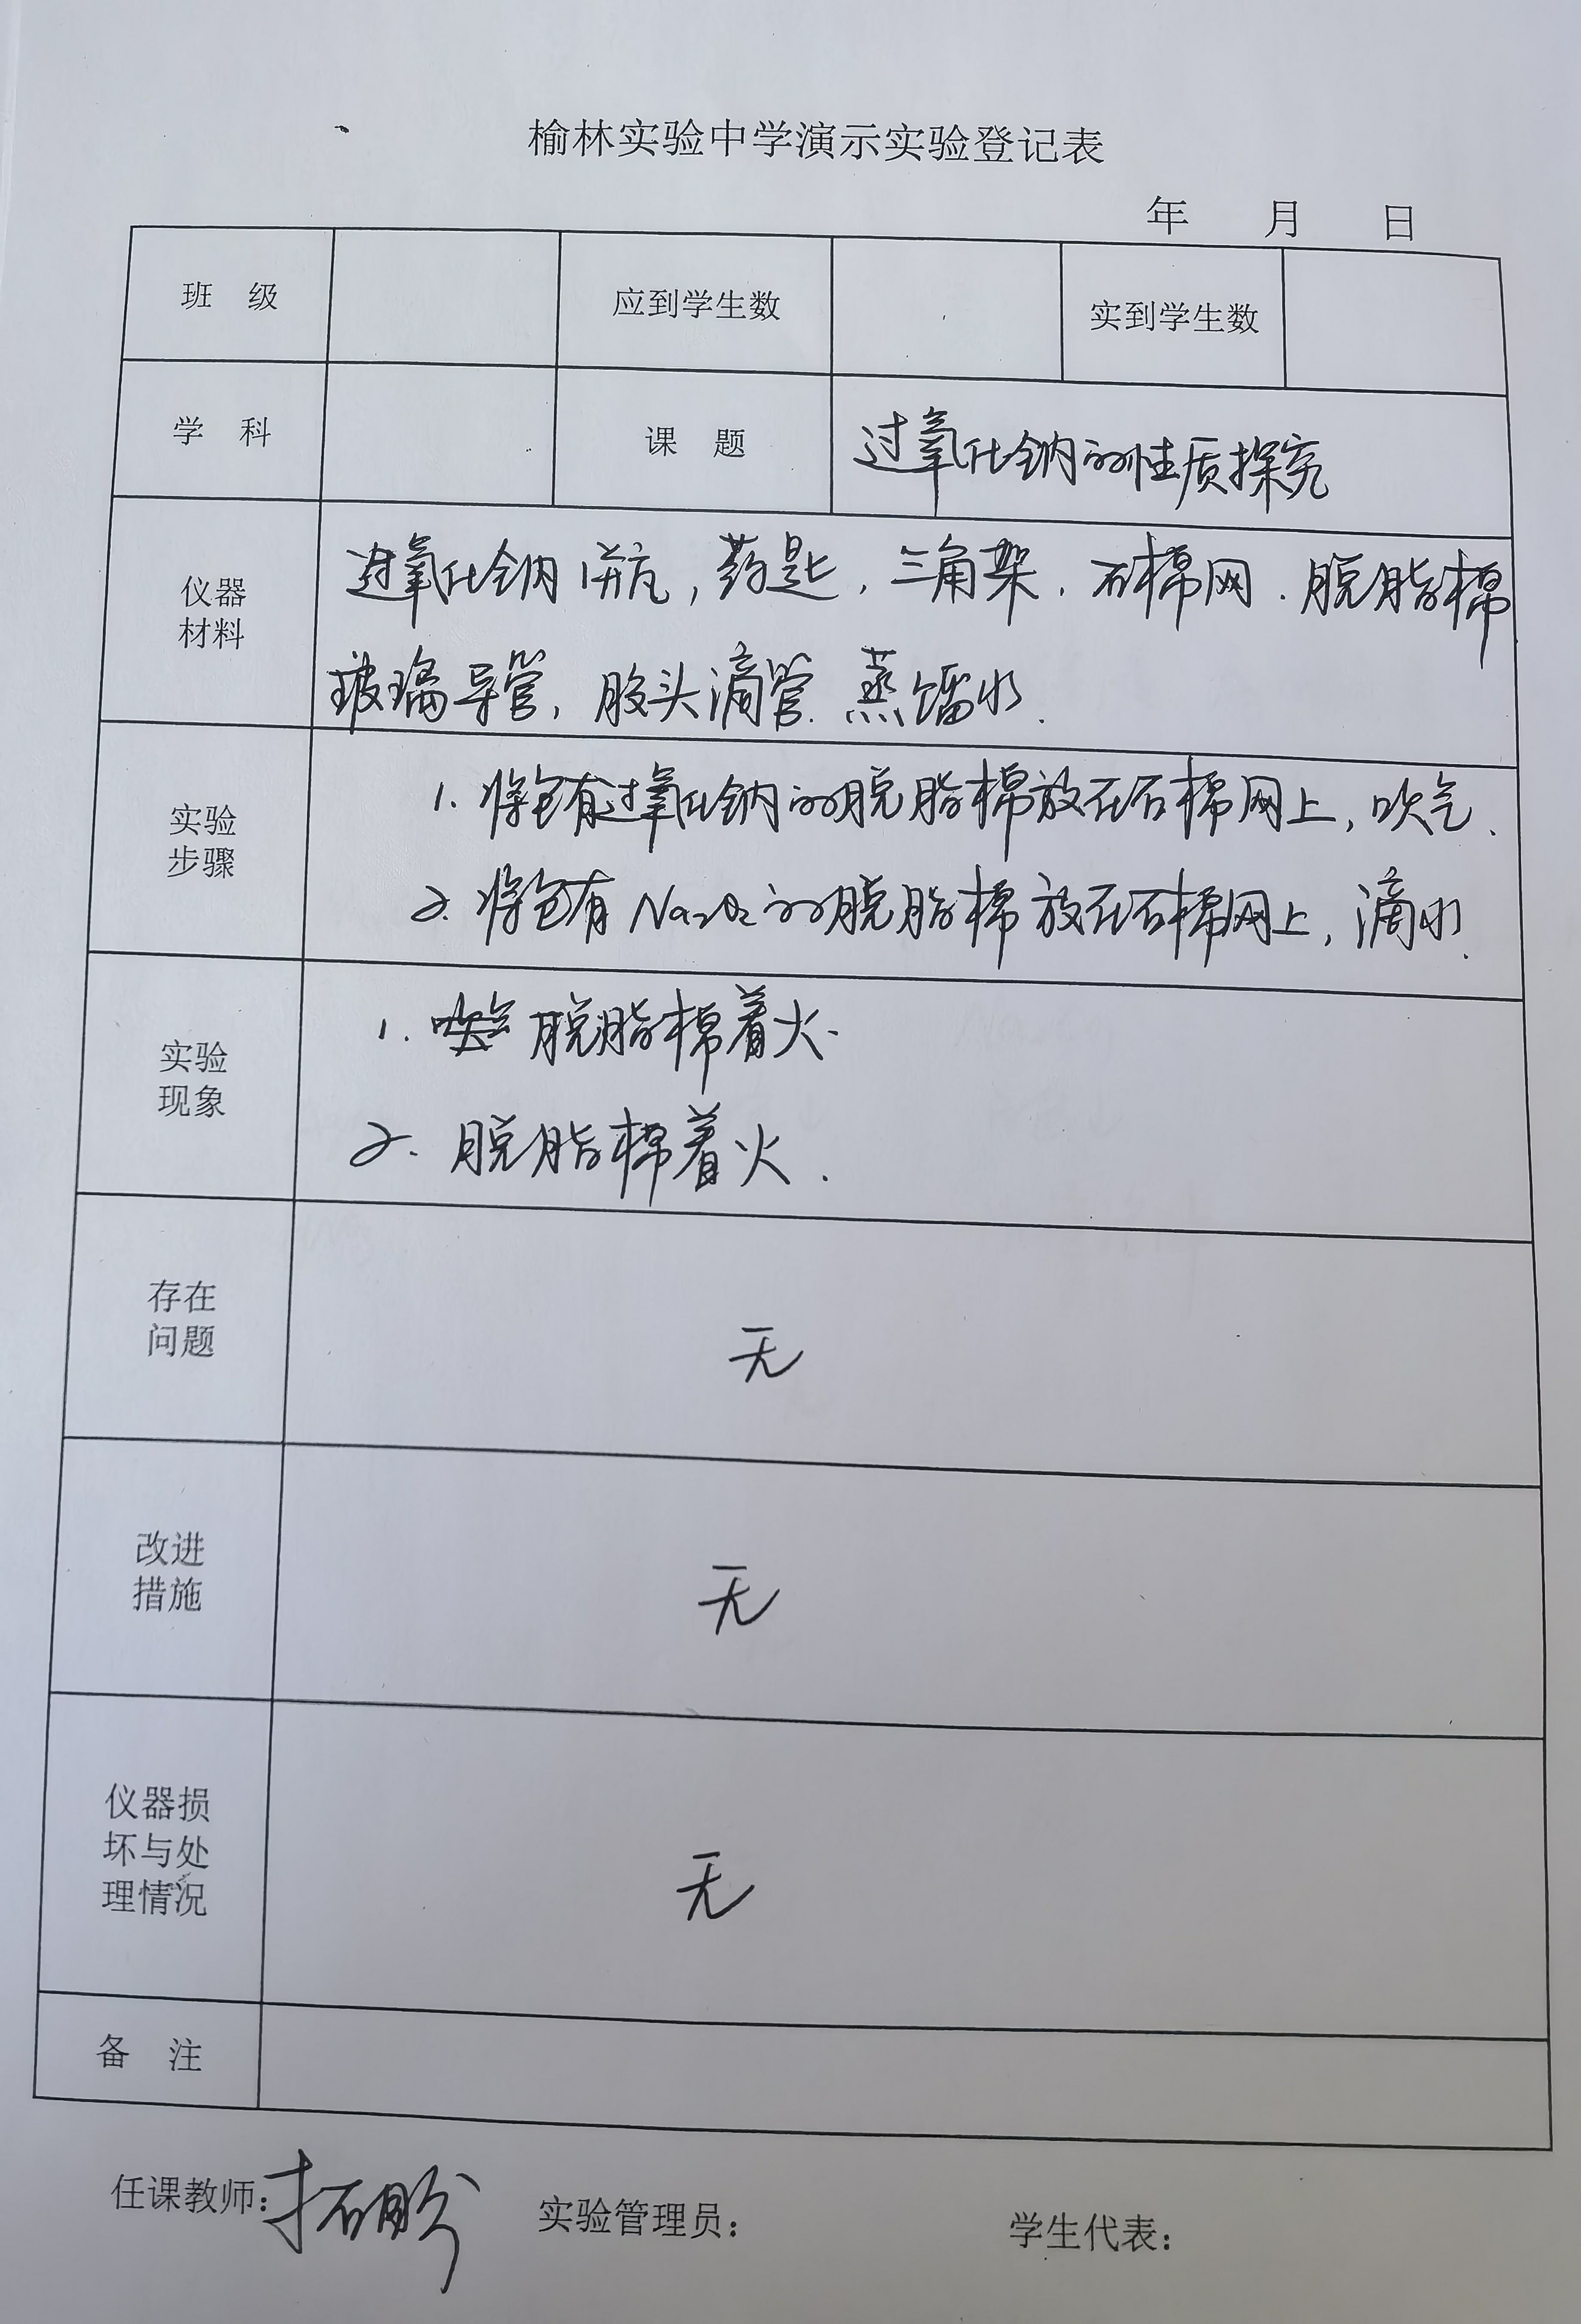 榆林实验中学演示实验登记表
年 月 日
班 级 应到学生数 实到学生数
学 科 课 题 过氧化钠的性质探究
仪器
材料
过氧化钠1瓶，药匙，三角架，石棉网．脱脂棉
玻璃导管，胶头滴管．蒸馏水．
实验
步骤
1. 将包有过氧化钠的脱脂棉放在石棉网上，吹气．
2. 将包有Na₂O₂的脱脂棉放在石棉网上，滴水．
实验
现象
1. 脱脂棉着火．
2. 脱脂棉着火．
存在
问题
无
改进
措施
无
仪器损
坏与处
理情况
无
备 注
任课教师：拓盼 实验管理员： 学生代表：